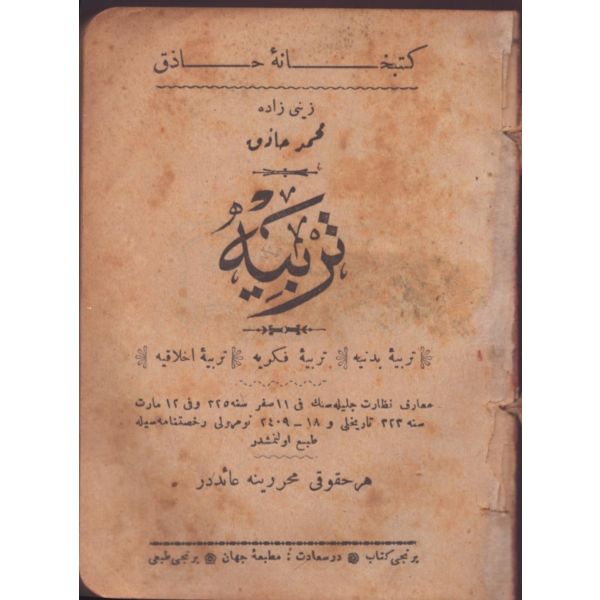 كتبخانهٔ حاذق
زينی زاده
محمد حاذق
تربيه
تربيهٔ بدنيه تربيهٔ فكريه تربيهٔ اخلاقيه
معارف نظارت جليله‌سنك فی ١١ صفر سنه ٣٢٥ وفی ١٢ مارت
سنه ٣٢٣ تاريخلی و ١٨ – ٢٤٠٩ نومرولی رخصتنامه سيله
طبع اولنمشدر
هر حقوقی محررينه عائددر
برنجی كتاب درسعادت : مطبعهٔ جهان برنجی طبعی